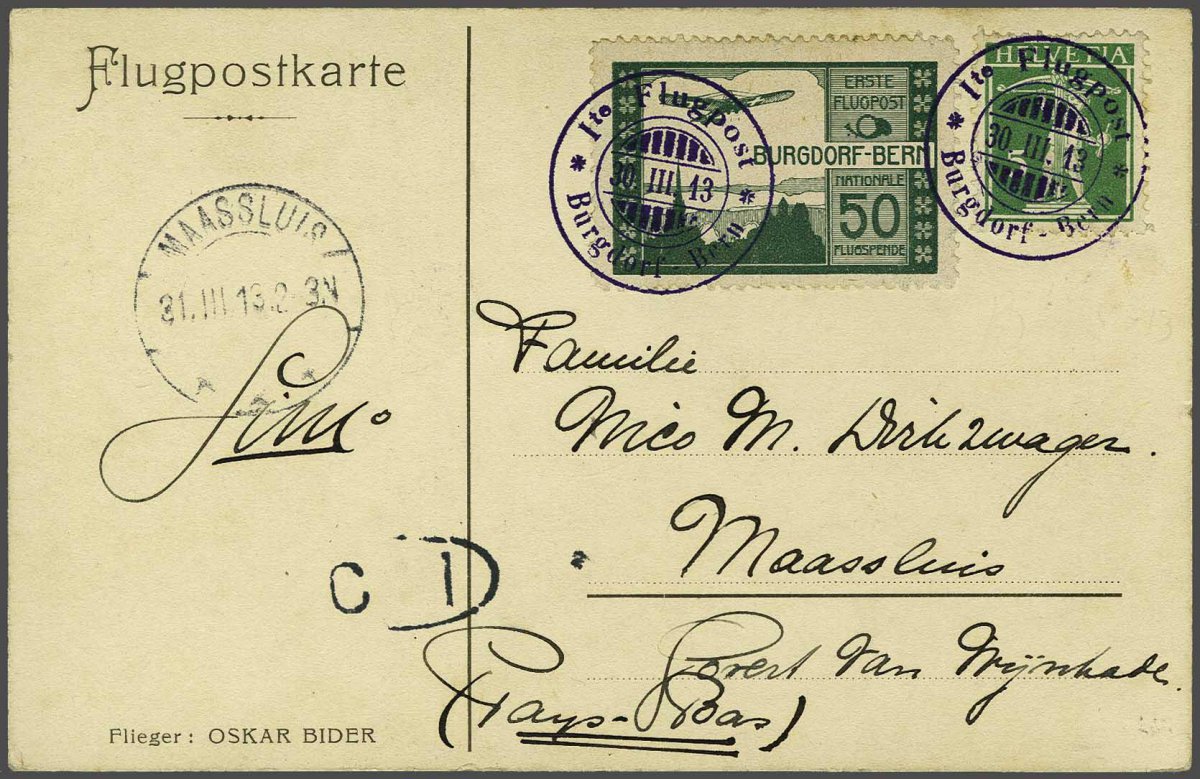 Flugpostkarte
MAASSLUIS
31.III.13.2-3.V
Simo
C D
1
Flieger: OSKAR BIDER
Ite Flugpost
30.III.13
Burgdorf-Bern
ERSTE
FLUGPOST
BURGDORF-BERN
NATIONALE
50
FLUGSPENDE
HELVETIA
5
Ite Flugpost
30.III.13
Burgdorf-Bern
Familie
Nico M. Dirkzwager.
Maassluis
2
Govert van Wijnkade.
(Pays-Bas)